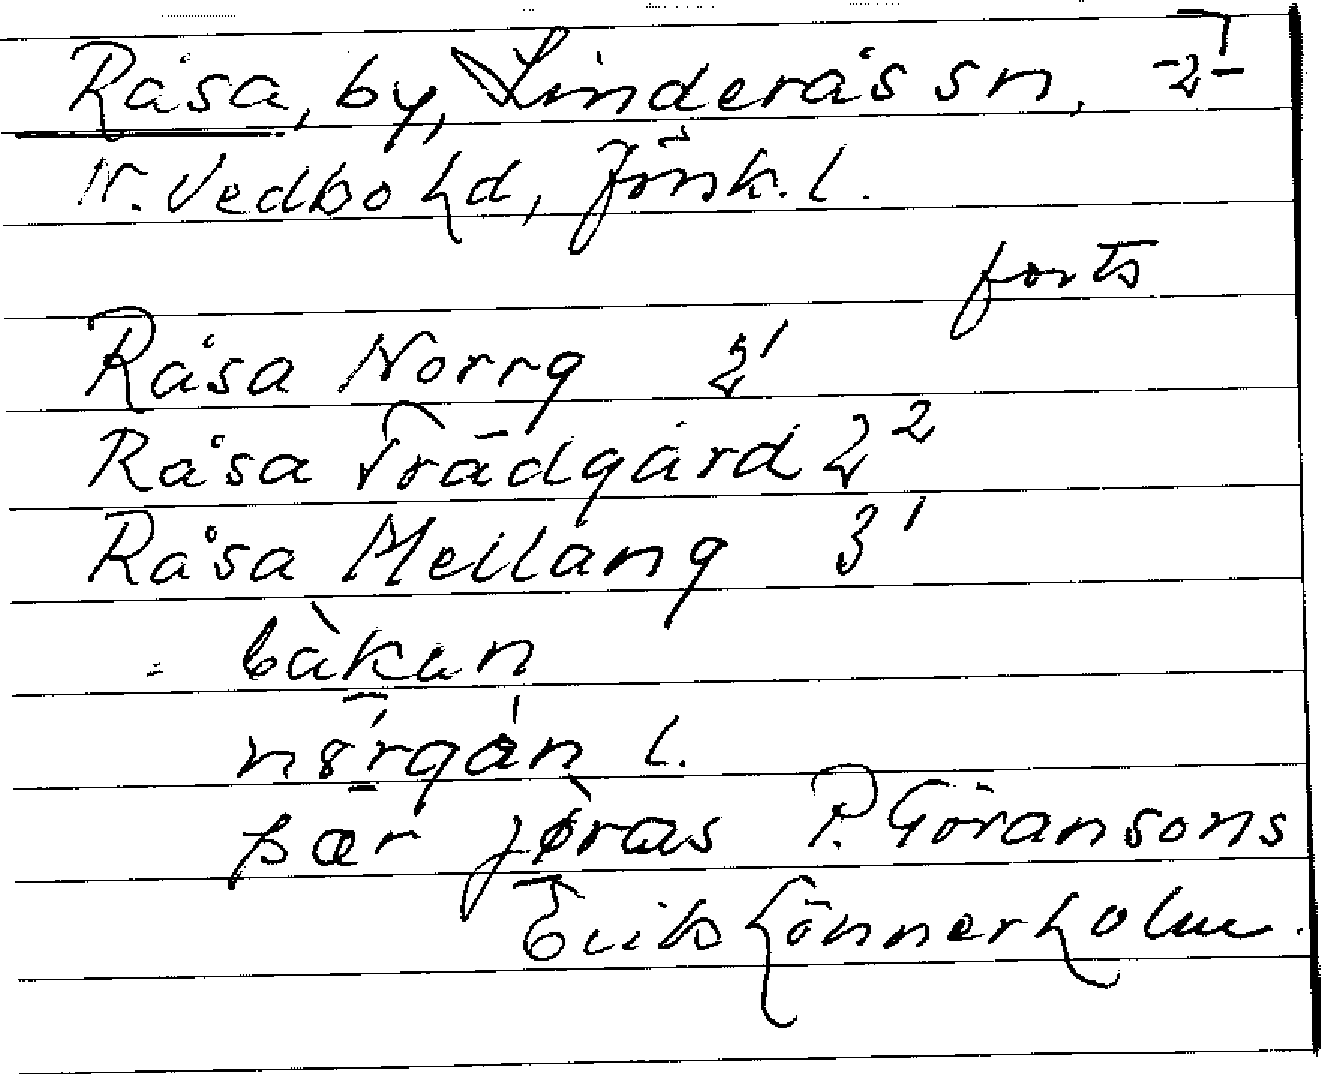 Råsa, by, Linderås sn, -2-
N. Vedbo hd, Jönk. l.
forts
Råsa Norrg 2¹
Råsa Trädgård 2²
Råsa Mellang 3¹
= bàkan
nörgån l.
pær jøras P. Göransons
Erik Lönnerholm.